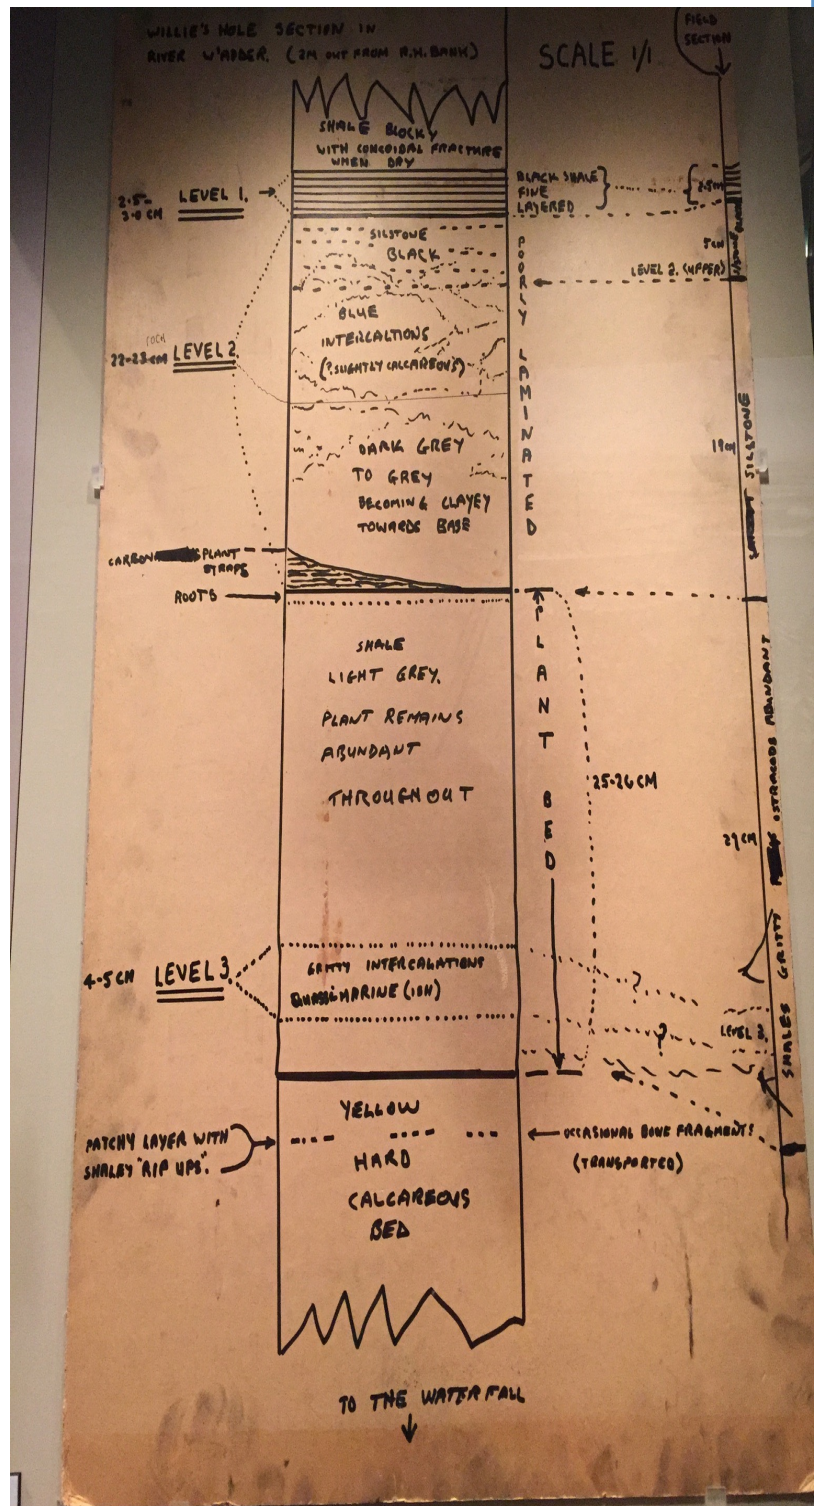 WILLIE'S HOLE SECTION IN
RIVER W'ADDER. (2M OUT FROM R.H. BANK)
SCALE 1/1
FIELD
SECTION
SHALE BLOCKY
WITH CONCOIDAL FRACTURE
WHEN DRY
2·5-
3·0 CM
LEVEL 1.
BLACK SHALE
FINE
LAYERED
2·5M
SILSTONE
BLACK
5CM
LEVEL 2. (UPPER)
POORLY LAMINATED
BLUE
INTERCALTIONS
(?SLIGHTLY CALCAREOUS)
22-23CM
LEVEL 2
DARK GREY
TO GREY
BECOMING CLAYEY
TOWARDS BASE
19CM
SILSTONE
PLANT
STRAPS
ROOTS
SHALE
LIGHT GREY.
PLANT REMAINS
ABUNDANT
THROUGHOUT
PLANT BED
25-26CM
29CM
OSTRACODS ABUNDANT
SHALES GRITTY
4-5CM
LEVEL 3
GRITTY INTERCALATIONS
MARINE (ISH)
?
?
LEVEL 3.
YELLOW
HARD
CALCAREOUS
BED
PATCHY LAYER WITH
SHALEY "RIP UPS".
OCCASIONAL BONE FRAGMENTS
(TRANSPORTED)
TO THE WATERFALL